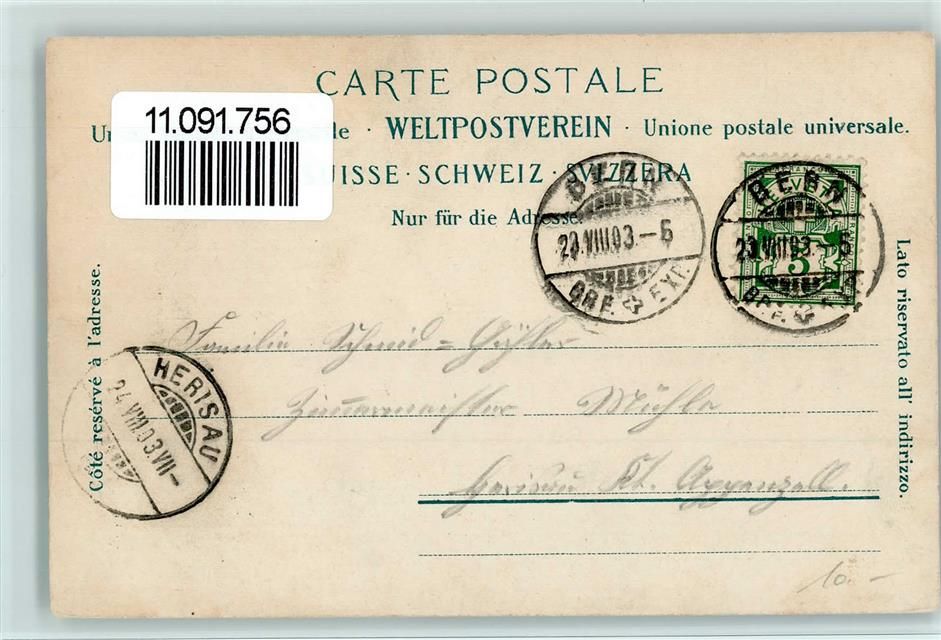 CARTE POSTALE
11.091.756
Un le · WELTPOSTVEREIN · Unione postale universale.
UISSE · SCHWEIZ · SVIZZERA
Nur für die Adresse.
BERN
23.VIII.03.–5
BRF. EXP.
BERN
23.VIII.03.–5
BRF. EXP.
5
Côté reservé à l'adresse.
Lato riservato all' indirizzo.
HERISAU
24.VIII.03.VII–
Familie Schmid =
Zimmermeister Mühle
Herisau Kt. Appenzell.
10.–